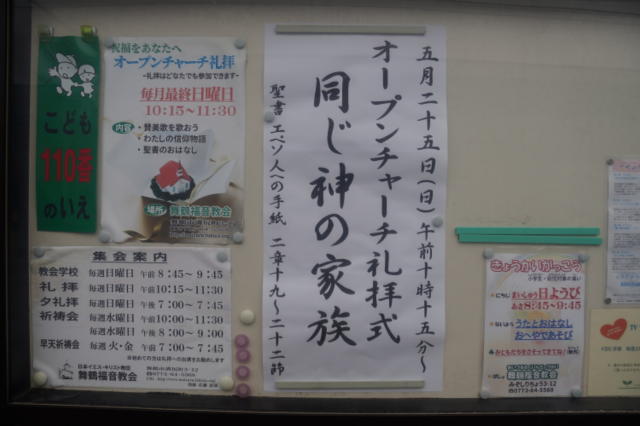 こども
110番
のいえ
祝福をあなたへ
オープンチャーチ礼拝
-礼拝はどなたでも参加できます-
毎月最終日曜日
10:15～11:30
内容
・賛美歌を歌おう
・わたしの信仰物語
・聖書のおはなし
場所
舞鶴福音教会
五月二十五日(日)午前十時十五分～
オープンチャーチ礼拝式
同じ神の家族
聖書 エペソ人への手紙 二章十九～二十二節
集会案内
教会学校 毎週日曜日 午前 8:45～9:45
礼拝 毎週日曜日 午前10:15～11:30
夕礼拝 毎週日曜日 午後 7:00～7:45
祈祷会 毎週水曜日 午前10:00～11:30
毎週水曜日 午後 8:00～9:00
早天祈祷会 毎週火・金 午前 7:00～7:45
日本イエス・キリスト教団
舞鶴福音教会
きょうかいがっこう
まいしゅう日ようび
あさ8:45～9:45
うたとおはなし
おへやであそび
おともだちをさそってきてね!
舞鶴福音教会
みぞしりちょう53-12
☎0773-64-5569